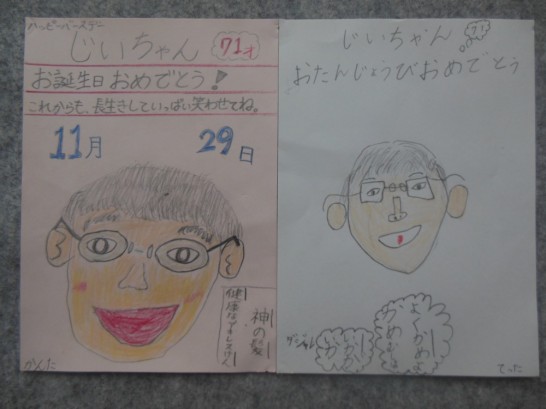 ハッピーバースデー
じいちゃん
71才
お誕生日おめでとう!
これからも、長生きしていっぱい笑わせてね。
11月 29日
神の髪
健康なアキレスけん
かんた
じいちゃん
71才
おたんじょうびおめでとう
てった